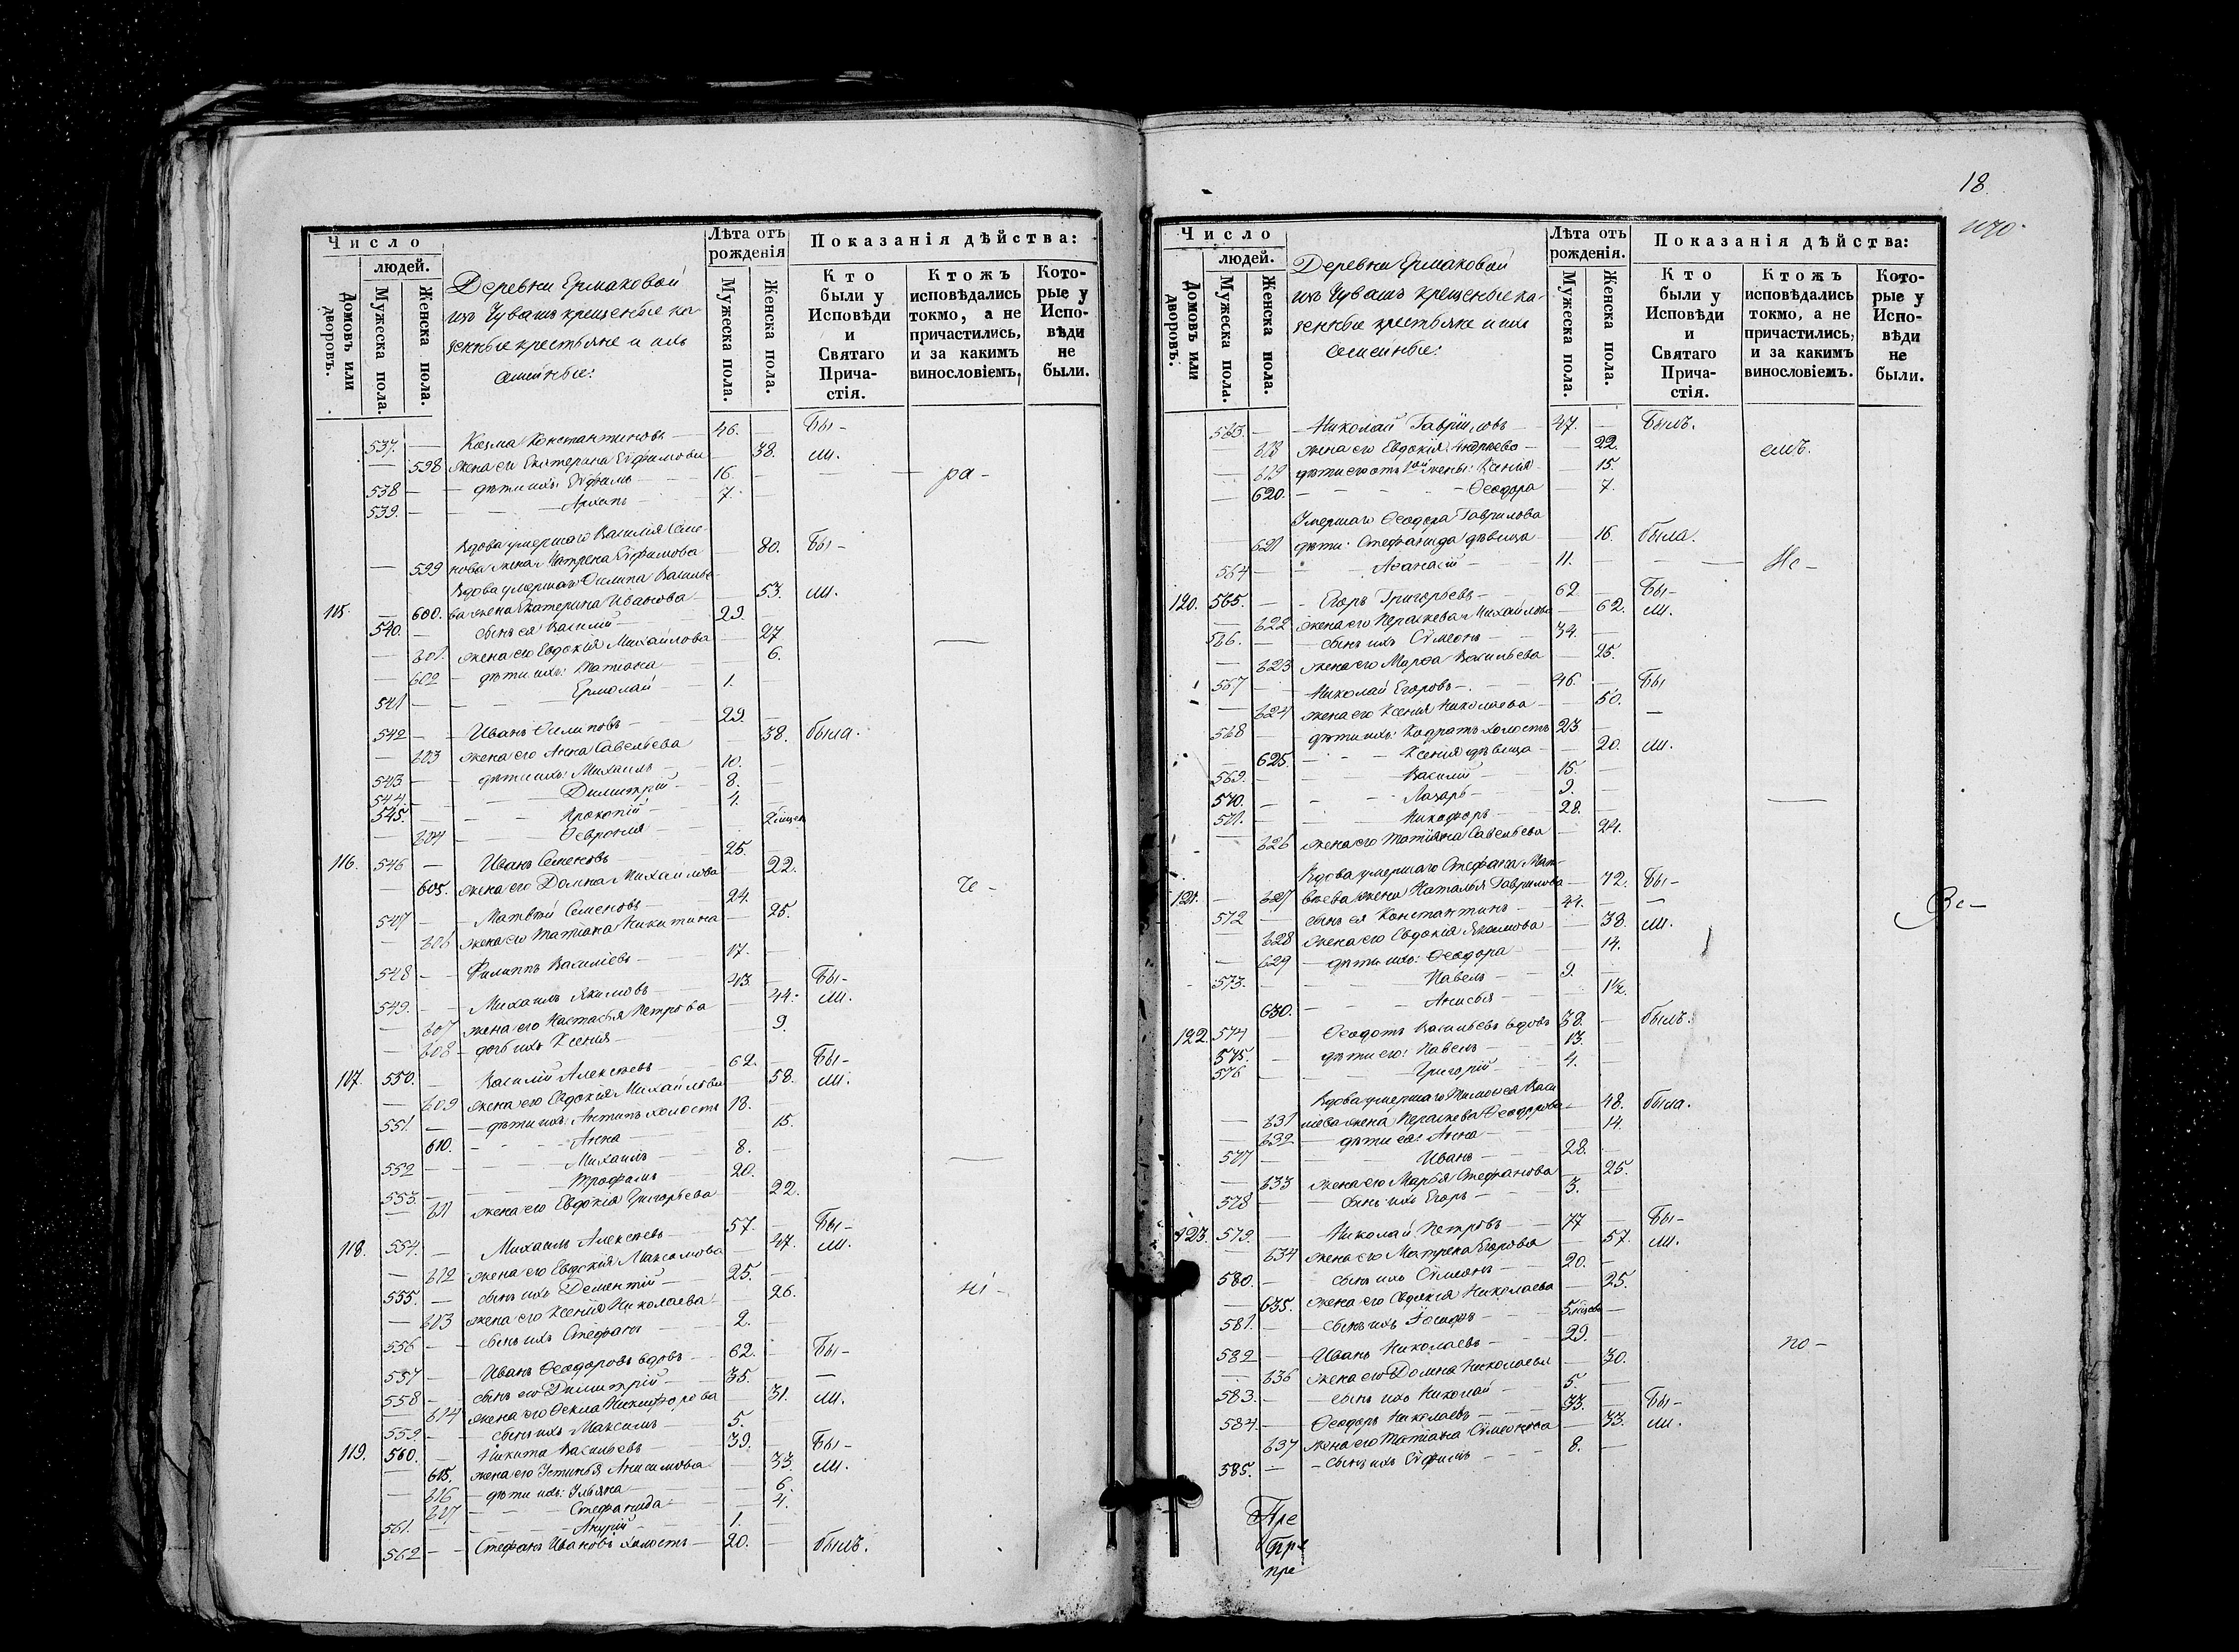 Число
людей.
Домовъ или дворовъ.
Мужеска пола.
Женска пола.
Деревни Ермаковой
изъ Чувашъ крещеные ка-
зенные крестьяне и ихъ
семейные:
Лѣта отъ
рожденія
Мужеска пола.
Женска пола.
Показанія дѣйства:
Кто
были у
Исповѣди
и
Святаго
Прича-
стія.
Ктожъ
исповѣдались
токмо, а не
причастились,
и за какимъ
винословіемъ.
Кото-
рые у
Испо-
вѣди
не
были.
537. — Козма Константиновъ — 46. — Бы-
— 598 жена его Екатерина Ефимова — 38. ли.
538 — — дѣти ихъ: Ефимъ — 16. — — ра-
539. — — Архипъ — 7. —
Вдова умершаго Василія Семе-
— 599 нова жена Матрена Ефимова — 80. Бы-
Вдова умершаго Филипа Василье-
115. — 600. ва жена Екатерина Иванова — 53. ли.
540. — сынъ ея Василій — 29.
— 601. жена его Евдокія Михайлова — 27 —
— 602 — дѣти ихъ: Татіана — 6.
541 — — Ермолай — 1. —
542 — — Иванъ Филиповъ — 29.
— 603 жена его Анна Савельева — 38. была.
543 — — дѣти ихъ: Михаилъ — 10. —
544. — — Димитрій — 8. —
545. — — Прокопій — 4. —
— 604 — Февронія —
116. 546 — Иванъ Семеновъ — 25. —
— 605. жена его Домна Михайлова — 22. че-
547 — — Матвѣй Семеновъ — 24.
— 606 жена его Татіана Никитина — 25.
548 — — Филиппъ Василіевъ — 17. —
549. — — Михаилъ Якимовъ — 43. — Бы-
— 607 жена его Настасья Петрова — 44. ли.
— 608 — дочь ихъ Ксенія — 9.
117. 550. — Василій Алексѣевъ — 62. — Бы-
— 609 жена его Евдокія Михайлова — 58. ли.
551. — — дѣти ихъ: Антипъ холостъ 18. —
610. — — Анна — 15.
552 — — Михаилъ — 8. — —
553. — — Трофимъ — 20.
— 611 жена его Евдокія Григорьева — 22.
118. 554. — Михаилъ Алексѣевъ — 57. — Бы-
— 612 жена его Евдокія Максимова — 47. ли.
555. — сынъ ихъ Дементій — 25. —
— 613 жена его Ксенія Николаева — 26. ні-
556 — — сынъ ихъ Стефанъ — 2. —
557 — Иванъ Феодоровъ вдовъ — 62. — Бы-
558 — — сынъ его Димитрій — 35. — —
— 614 жена его Фекла Никифорова — 31. ли.
559. — — сынъ ихъ Максимъ — 5. —
119. 560. — Никита Васильевъ — 39. — Бы-
— 615. жена его Устинья Анисимова — 33. ли.
— 616 — дѣти ихъ: Ульяна — 6.
617 — — Стефанида — 4.
561. — — 1. —
562 — — Стефанъ Ивановъ холостъ — 20. — былъ.
18.
Число
людей.
Домовъ или дворовъ.
Мужеска пола.
Женска пола.
Деревни Ермаковой
изъ Чувашъ крещеные ка-
зенные крестьяне и ихъ
семейные:
Лѣта отъ
рожденія.
Мужеска пола.
Женска пола.
Показанія дѣйства:
Кто
были у
Исповѣди
и
Святаго
Прича-
стія.
Ктожъ
исповѣдались
токмо, а не
причастились,
и за какимъ
винословіемъ.
Кото-
рые у
Испо-
вѣди
не
были.
563. — — Николай Гавриловъ — 47. — Былъ.
— 618 жена его Евдокія Андреева — 22. емъ.
— 619 дѣти его отъ 1ой жены: Ксенія — 15.
— 620. — — Феодора — 7.
Умершаго Феодора Гаврилова
621 дѣти: Стефанида дѣвица — 16. была.
564 — — Афанасій — 11. — — Не-
120. 565. — — Егоръ Григорьевъ — 62 — Бы-
— 622 жена его Параскева Михайлова — 62. ли.
566. — — сынъ ихъ Сѷмеонъ — 34. —
— 623 жена его Марфа Васильева — 25.
567 — — Николай Егоровъ — 46. — Бы
— 624 жена его Ксенія Николаева — 50.
568 — дѣти ихъ: Кодратъ холостъ 23. — —
— 625. — — Ксенія дѣвица — 20. ли.
569. — — Василій — 15. —
570. — — Лазарь — 9. — —
571. — — Никифоръ — 28. —
626 жена его Татіяна Савельева — 24.
Вдова умершаго Стефана Мат-
121. — 627 вѣева жена Наталья Гаврилова — 72. Бы-
572 — сынъ ея Константинъ — 44. — —
— 628 жена его Евдокія Якимова — 38. ли.
— 629 — дѣти ихъ: Феодора — 14.
573. — — Павелъ — 9. —
630. — — Анисья — 1½.
122. 574 — Феодотъ Васильевъ вдовъ 38. — былъ.
575. — дѣти его: Павелъ — 13.
576 — — Григорій — 4. —
Вдова умершаго Тимофея Васи
— 631 лiева жена Параскева Феодорова — 48. была.
— 632 — дѣти ея: Анна — 14.
577 — — Иванъ — 28. —
— 633 жена его Марья Стефанова — 25.
578 — — сынъ ихъ Егоръ — 3. —
123. 579. — Николай Петровъ — 77 — Бы-
— 634 жена его Матрена Егорова — 57. ли.
580. — сынъ ихъ Сѷмеонъ — 20. —
— 635. жена его Евдокія Николаева — 25.
581. — — сынъ ихъ Іосифъ —
582 — — Иванъ Николаевъ — 29. — по-
— 636 жена его Домна Николаева — 30.
583. — — сынъ ихъ Николай — 5. —
584. — Феодоръ Николаевъ — 33. — Бы-
637 жена его Татіана Сѷмеонова — 33. ли.
585. — — сынъ ихъ Ефимъ — 8. —
Пре
Пре
пре